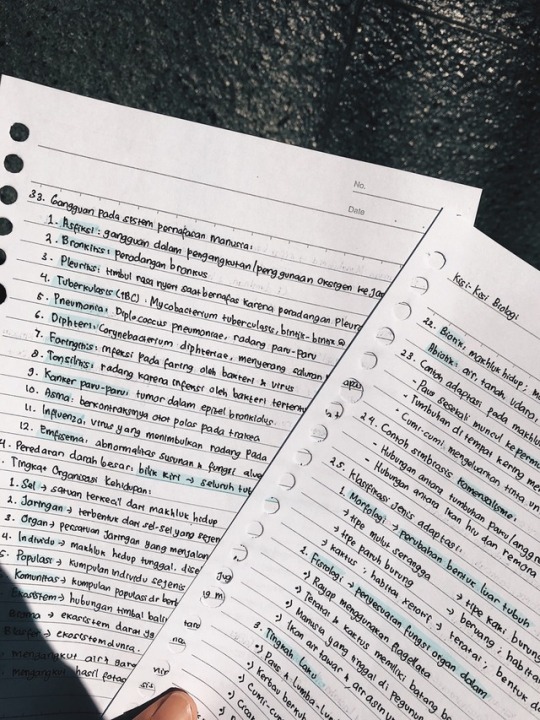 No.
Date
33. Gangguan pada sistem pernafasan manusia:
1. Asfiksi: gangguan dalam pengangkutan/penggunaan oksigen ke jar
2. Bronkitis: peradangan bronkus
3. Pleuritis: timbul rasa nyeri saat bernafas karena peradangan Pleur
4. Tuberkulosis (TBC): Mycobacterium tuberculosis, bintik-bintik
5. Pneumonia: Diplococcus pneumoniae, radang paru-paru
6. Difteri: Corynebacterium diphteriae, menyerang saluran
7. Faringitis: infeksi pada faring oleh bakteri & virus
8. Tonsilitis: radang karena infeksi oleh bakteri tertent
9. Kanker paru-paru: tumor dalam epitel bronkiolus
10. Asma: berkontraksinya otot polos pada trakea
11. Influenza: virus yang menimbulkan radang pada
12. Emfisema: abnormalitas susunan & fungsi alve
4. Peredaran darah besar: bilik kiri → seluruh tub
Tingkat Organisasi Kehidupan:
1. Sel → satuan terkecil dari makhluk hidup
2. Jaringan → terbentuk dari sel-sel yang sejen
3. Organ → persatuan jaringan yang menjalan
4. Individu → makhluk hidup tunggal.
5. Populasi → kumpulan individu sejenis
Komunitas → kumpulan populasi dr
Ekosistem → hubungan timbal bali
Bioma → ekosistem darat
Biosfer → ekosistem dunia.
mengangkut air & gara
mengangkut hasil fotos
Kisi-Kisi Biologi
22. Biotik: makhluk hidup;
Abiotik: air, tanah, udara,
23. Contoh adaptasi pada makhlu
- Paus sesekali muncul ke perm
- Tumbuhan di tempat kering me
- Cumi-cumi mengeluarkan tinta un
24. Contoh simbiosis komensalisme:
- Hubungan antara tumbuhan paku
- Hubungan antara ikan hiu dan remora
25. Klasifikasi jenis adaptasi:
1. Morfologi → perubahan bentuk luar tubuh
→ tipe mulut serangga
→ tipe kaki burung
→ tipe paruh burung
→ kaktus: habitat xerofit
→ teratai;
2. Fisiologi → penyesuaian fungsi organ dalam
→ Rayap menggunakan flagellata
→ Teratai & kaktus memiliki batang
→ Manusia yang tinggal di pegunun
→ Ikan air tawar & air asin
3. Tingkah Laku:
→ Paus & lumba-lum
→ Kerbau
→ Cumi-cum